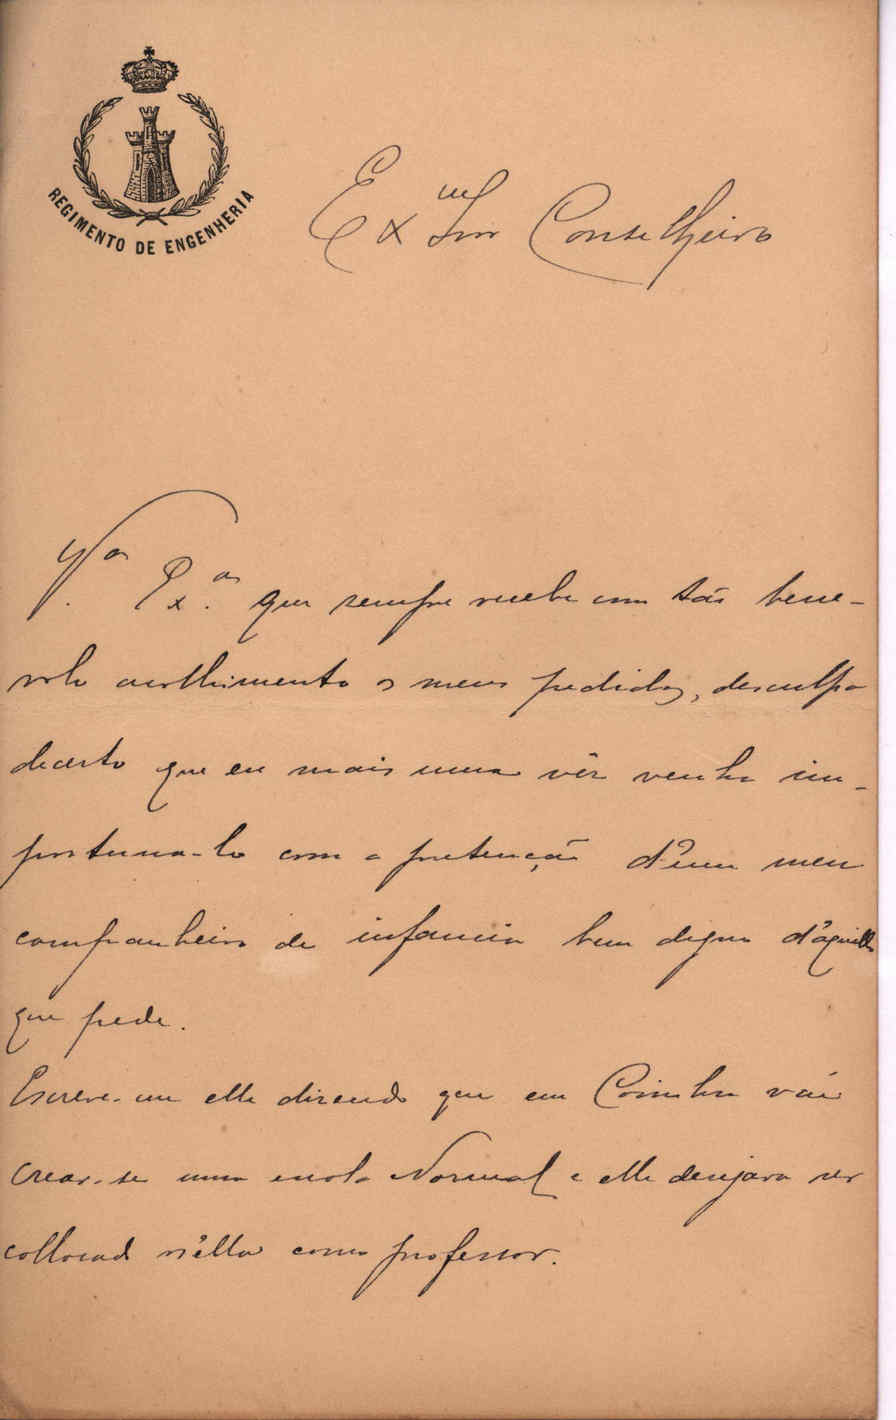 REGIMENTO DE ENGENHERIA
Exmo Snr Conselheiro
V.ª Ex.ª que sempre recebe com tão bene-
volo acolhimento os meus pedidos, desculpa
decerto que eu mais uma vêz venha im-
portuna-lo com a pretenção d'um meu
companheiro de infancia bem digno d'aquillo
que pede.
Escreve-me elle dizendo que em Coimbra vão
crear-se uma escola Normal e elle desejava ser
collocado n'ella como professor.